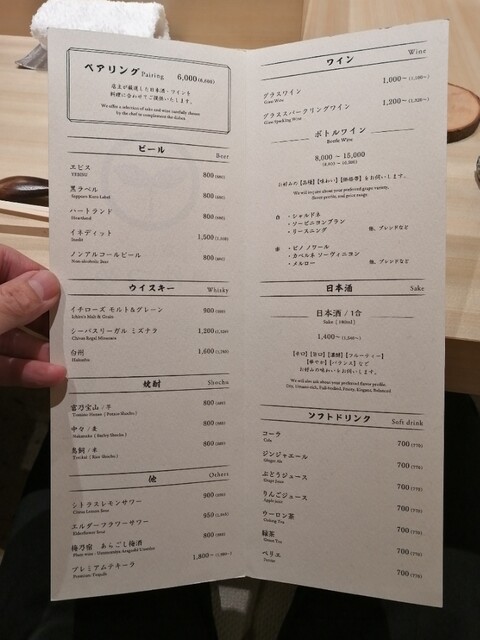 ペアリング Pairing 6,000 (6,600)
店主が厳選した日本酒・ワインを
料理に合わせてご提供いたします。
We offer a selection of sake and wine carefully chosen
by the chef to complement the dishes
ビール Beer
エビス 800 (880)
YEBISU
黒ラベル 800 (880)
Sapporo Kuro Label
ハートランド 800 (880)
Heartland
イネディット 1,500 (1,650)
Inedit
ノンアルコールビール 800 (880)
Non-alcoholic Beer
ウイスキー Whisky
イチローズ モルト&グレーン 900 (990)
Ichiro's Malt & Grain
シーバスリーガル ミズナラ 1,200 (1,320)
Chivas Regal Mizunara
白州 1,600 (1,760)
Hakushu
焼酎 Shochu
富乃宝山 / 芋 800 (880)
Tomino Houzan ( Potato Shochu )
中々 / 麦 800 (880)
Nakanaka ( Barley Shochu )
鳥飼 / 米 800 (880)
Torikai ( Rice Shochu )
他 Others
シトラスレモンサワー 900 (990)
Citrus Lemon Sour
エルダーフラワーサワー 950 (1,045)
Elderflower Sour
梅乃宿 あらごし梅酒 800 (880)
プレミアムテキーラ 1,800~
Premium Tequila
ワイン Wine
グラスワイン 1,000~ (1,100~)
Glass Wine
グラススパークリングワイン 1,200~ (1,320~)
Glass Sparkling Wine
ボトルワイン
Bottle Wine
8,000 ~ 15,000
(8,800 ~ 16,500)
お好みの【品種】【味わい】【価格帯】もお伺いします。
We will inquire about your preferred grape variety,
flavor profile, and price range.
白 ・シャルドネ
・ソービニヨンブラン
・リースニング 他、ブレンドなど
赤 ・ピノ ノワール
・カベルネ ソーヴィニヨン
・メルロー 他、ブレンドなど
日本酒 Sake
日本酒 / 1合
Sake [ 180ml ]
1,400~ (1,540~)
【辛口】【旨口】【濃醇】【フルーティー】
【華やか】【バランス】など
お好みの味わいもお伺いします。
We will also ask about your preferred flavor profile:
Dry, Umami-rich, Full-bodied, Fruity, Elegant, Balanced
ソフトドリンク Soft drink
コーラ 700 (770)
Cola
ジンジャエール 700 (770)
Ginger Ale
ぶどうジュース 700 (770)
りんごジュース 700 (770)
Apple Juice
ウーロン茶 700 (770)
Oolong Tea
緑茶 700 (770)
Green Tea
ペリエ 700 (770)
Perrier